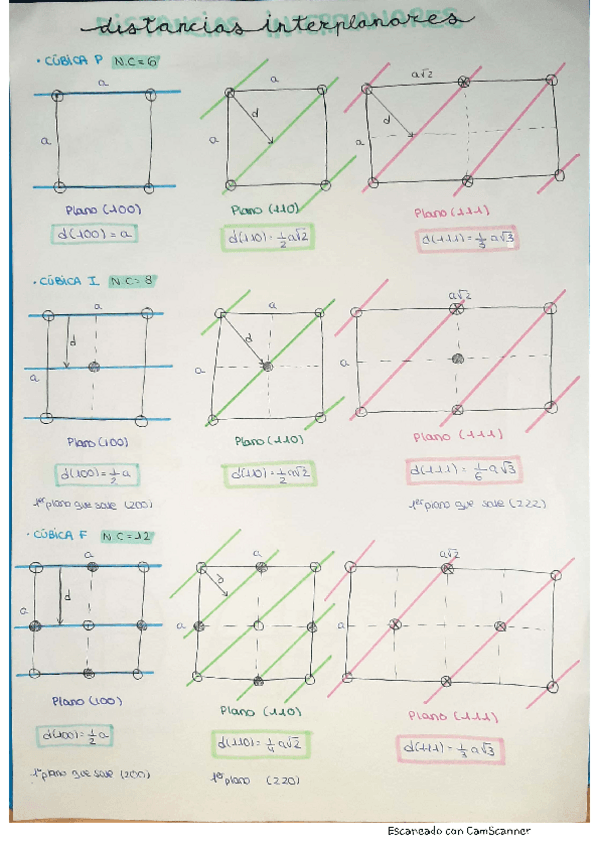 distancias interplanares
DISTANCIAS INTERPLANARES
• CÚBICA P N.C=6
a a a√2
d d
a a a
Plano (100) Plano (110) Plano (111)
d(100)=a d(110)=1/2 a√2 d(111)=1/3 a√3
• CÚBICA I N.C=8
a a a√2
d d
a a a
Plano (100) Plano (110) Plano (111)
d(100)=1/2 a d(110)=1/2 a√2 d(111)=1/6 a√3
1er plano que sale (200) 1er plano que sale (222)
• CÚBICA F N.C=12
a a a√2
d d
a a a
Plano (100) Plano (110) Plano (111)
d(100)=1/2 a d(110)=1/4 a√2 d(111)=1/3 a√3
1er plano que sale (200) 1er plano (220)
Escaneado con CamScanner